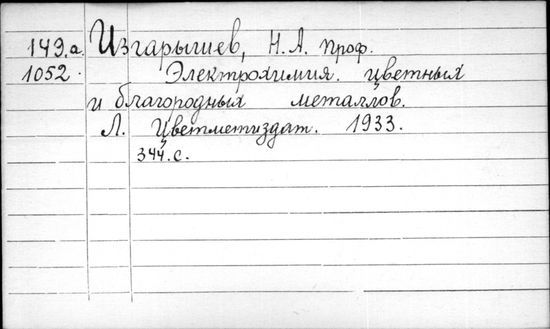 149.а. Изгарышев, Н. А. проф.
1052. Электрохимия. цветных
и благородных металлов.
Л. Цветметиздат. 1933.
344. с.